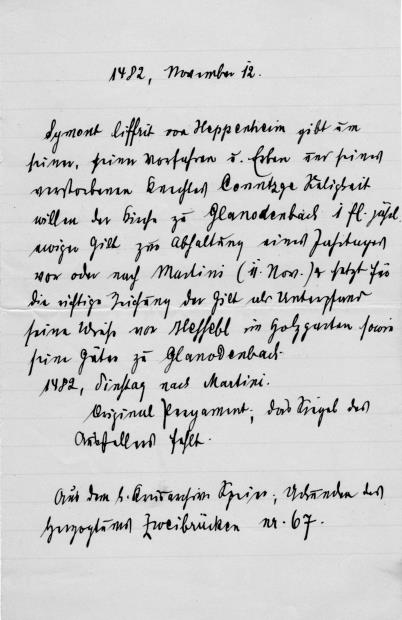 1482, November 12.
Symont Liffrit von Heppenheim gibt um
seiner, seiner Vorfahren u. Erben und seines
verstorbenen Knechtes Conntzge Seligkeit
willen der Kirche zu Glanodenbach 1 fl. jährl.
ewiger Gilt zur Abhaltung eines Jahrtages
vor oder nach Martini (11. Nov.) & setzt für
die richtige Reichung der Gilt als Unterpfand
seine Wiese vor im Holzgarten sowie
seine Güter zu Glanodenbach.
1482, Dienstag nach Martini.
Original Pergament; das Siegel des
Ausstellers fehlt.
Aus dem k. Kreisarchiv Speier, Urkunden des
Herzogtums Zweibrücken nr. 67.